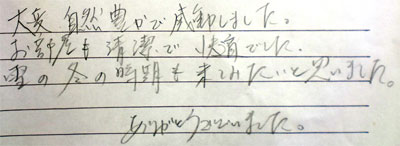 大変自然豊かで感動しました。
お部屋も清潔で快適でした。
雪の冬の時期も来てみたいと思いました。
ありがとうございました。